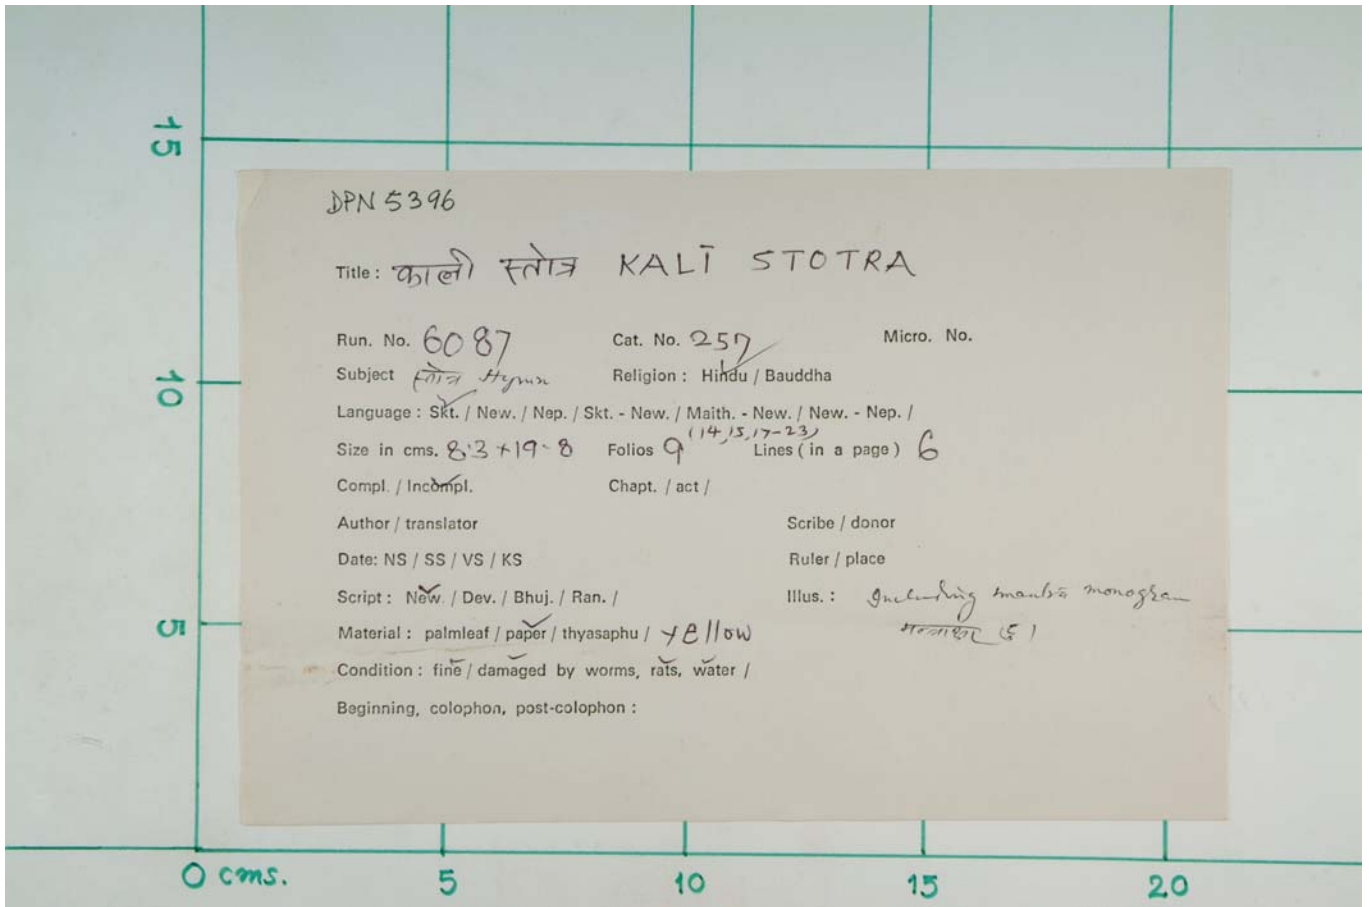 15
DPN 5396
Title : काली स्तोत्र KALĪ STOTRA
Run. No. 6087 Cat. No. 257 Micro. No.
10
Subject स्तोत्र Hymn Religion : Hindu / Bauddha
Language : Skt. / New. / Nep. / Skt. - New. / Maith. - New. / New. - Nep. /
Size in cms. 8.3 + 19.8 Folios 9 (14, 15, 17-23) Lines ( in a page ) 6
Compl. / Incompl. Chapt. / act /
Author / translator Scribe / donor
Date: NS / SS / VS / KS Ruler / place
Script : New. / Dev. / Bhuj. / Ran. / Illus. : Including mantra monogram
5
Material : palmleaf / paper / thyasaphu / yellow
Condition : fine / damaged by worms, rats, water /
Beginning, colophon, post-colophon :
0 cms. 5 10 15 20